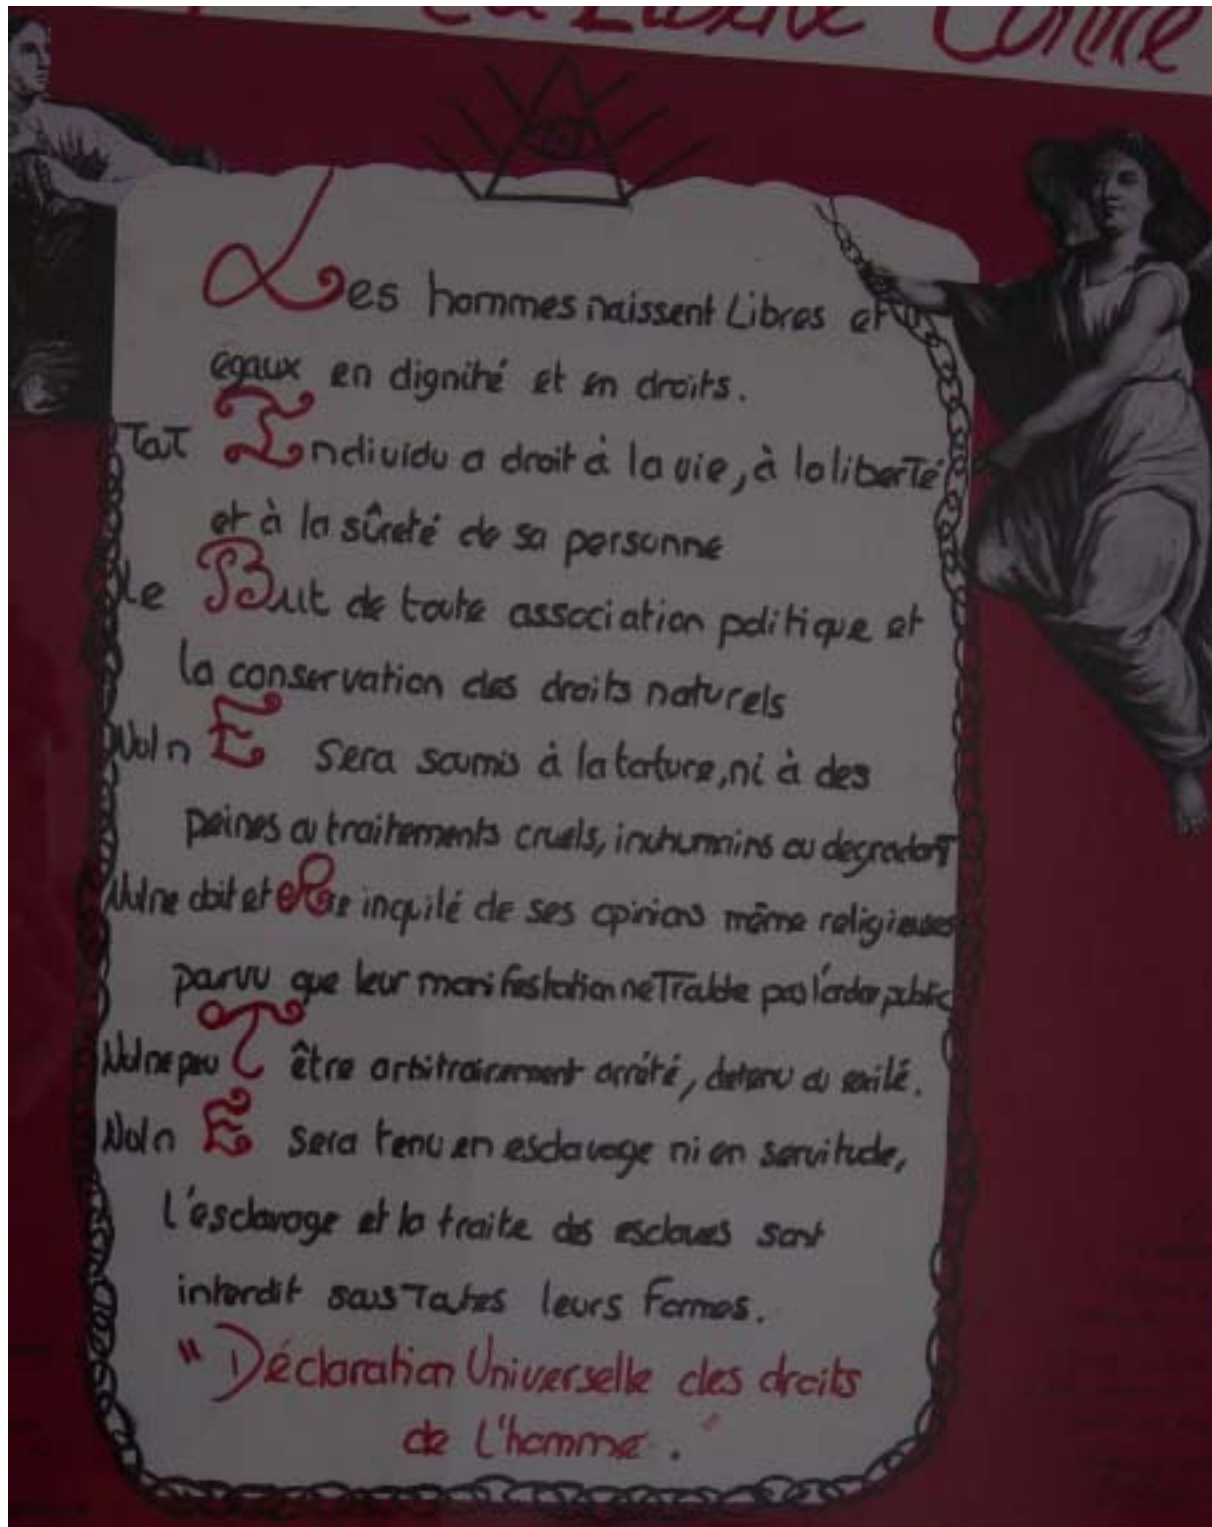 La Liberté Contre
Les hommes naissent Libres et
égaux en dignité et en droits.
Tout Individu a droit à la vie, à la liberté
et à la sûreté de sa personne
Le But de toute association politique et
la conservation des droits naturels
Nul n E sera soumis à la torture, ni à des
peines ou traitements cruels, inuhumins ou degradant
Nul ne doit et Re inquilé de ses opinions même religieuses
parvu que leur manifestation ne Trouble pas l'ordar public
Nul ne peu T être arbitrairement arrété, detenu ou exilé.
Nul n E sera tenu en esclavage ni en servitude,
l'esclavage et la traite des esclaves sont
interdit sous Toutes leurs Formes.
"Déclaration Universelle des droits
de L'homme."